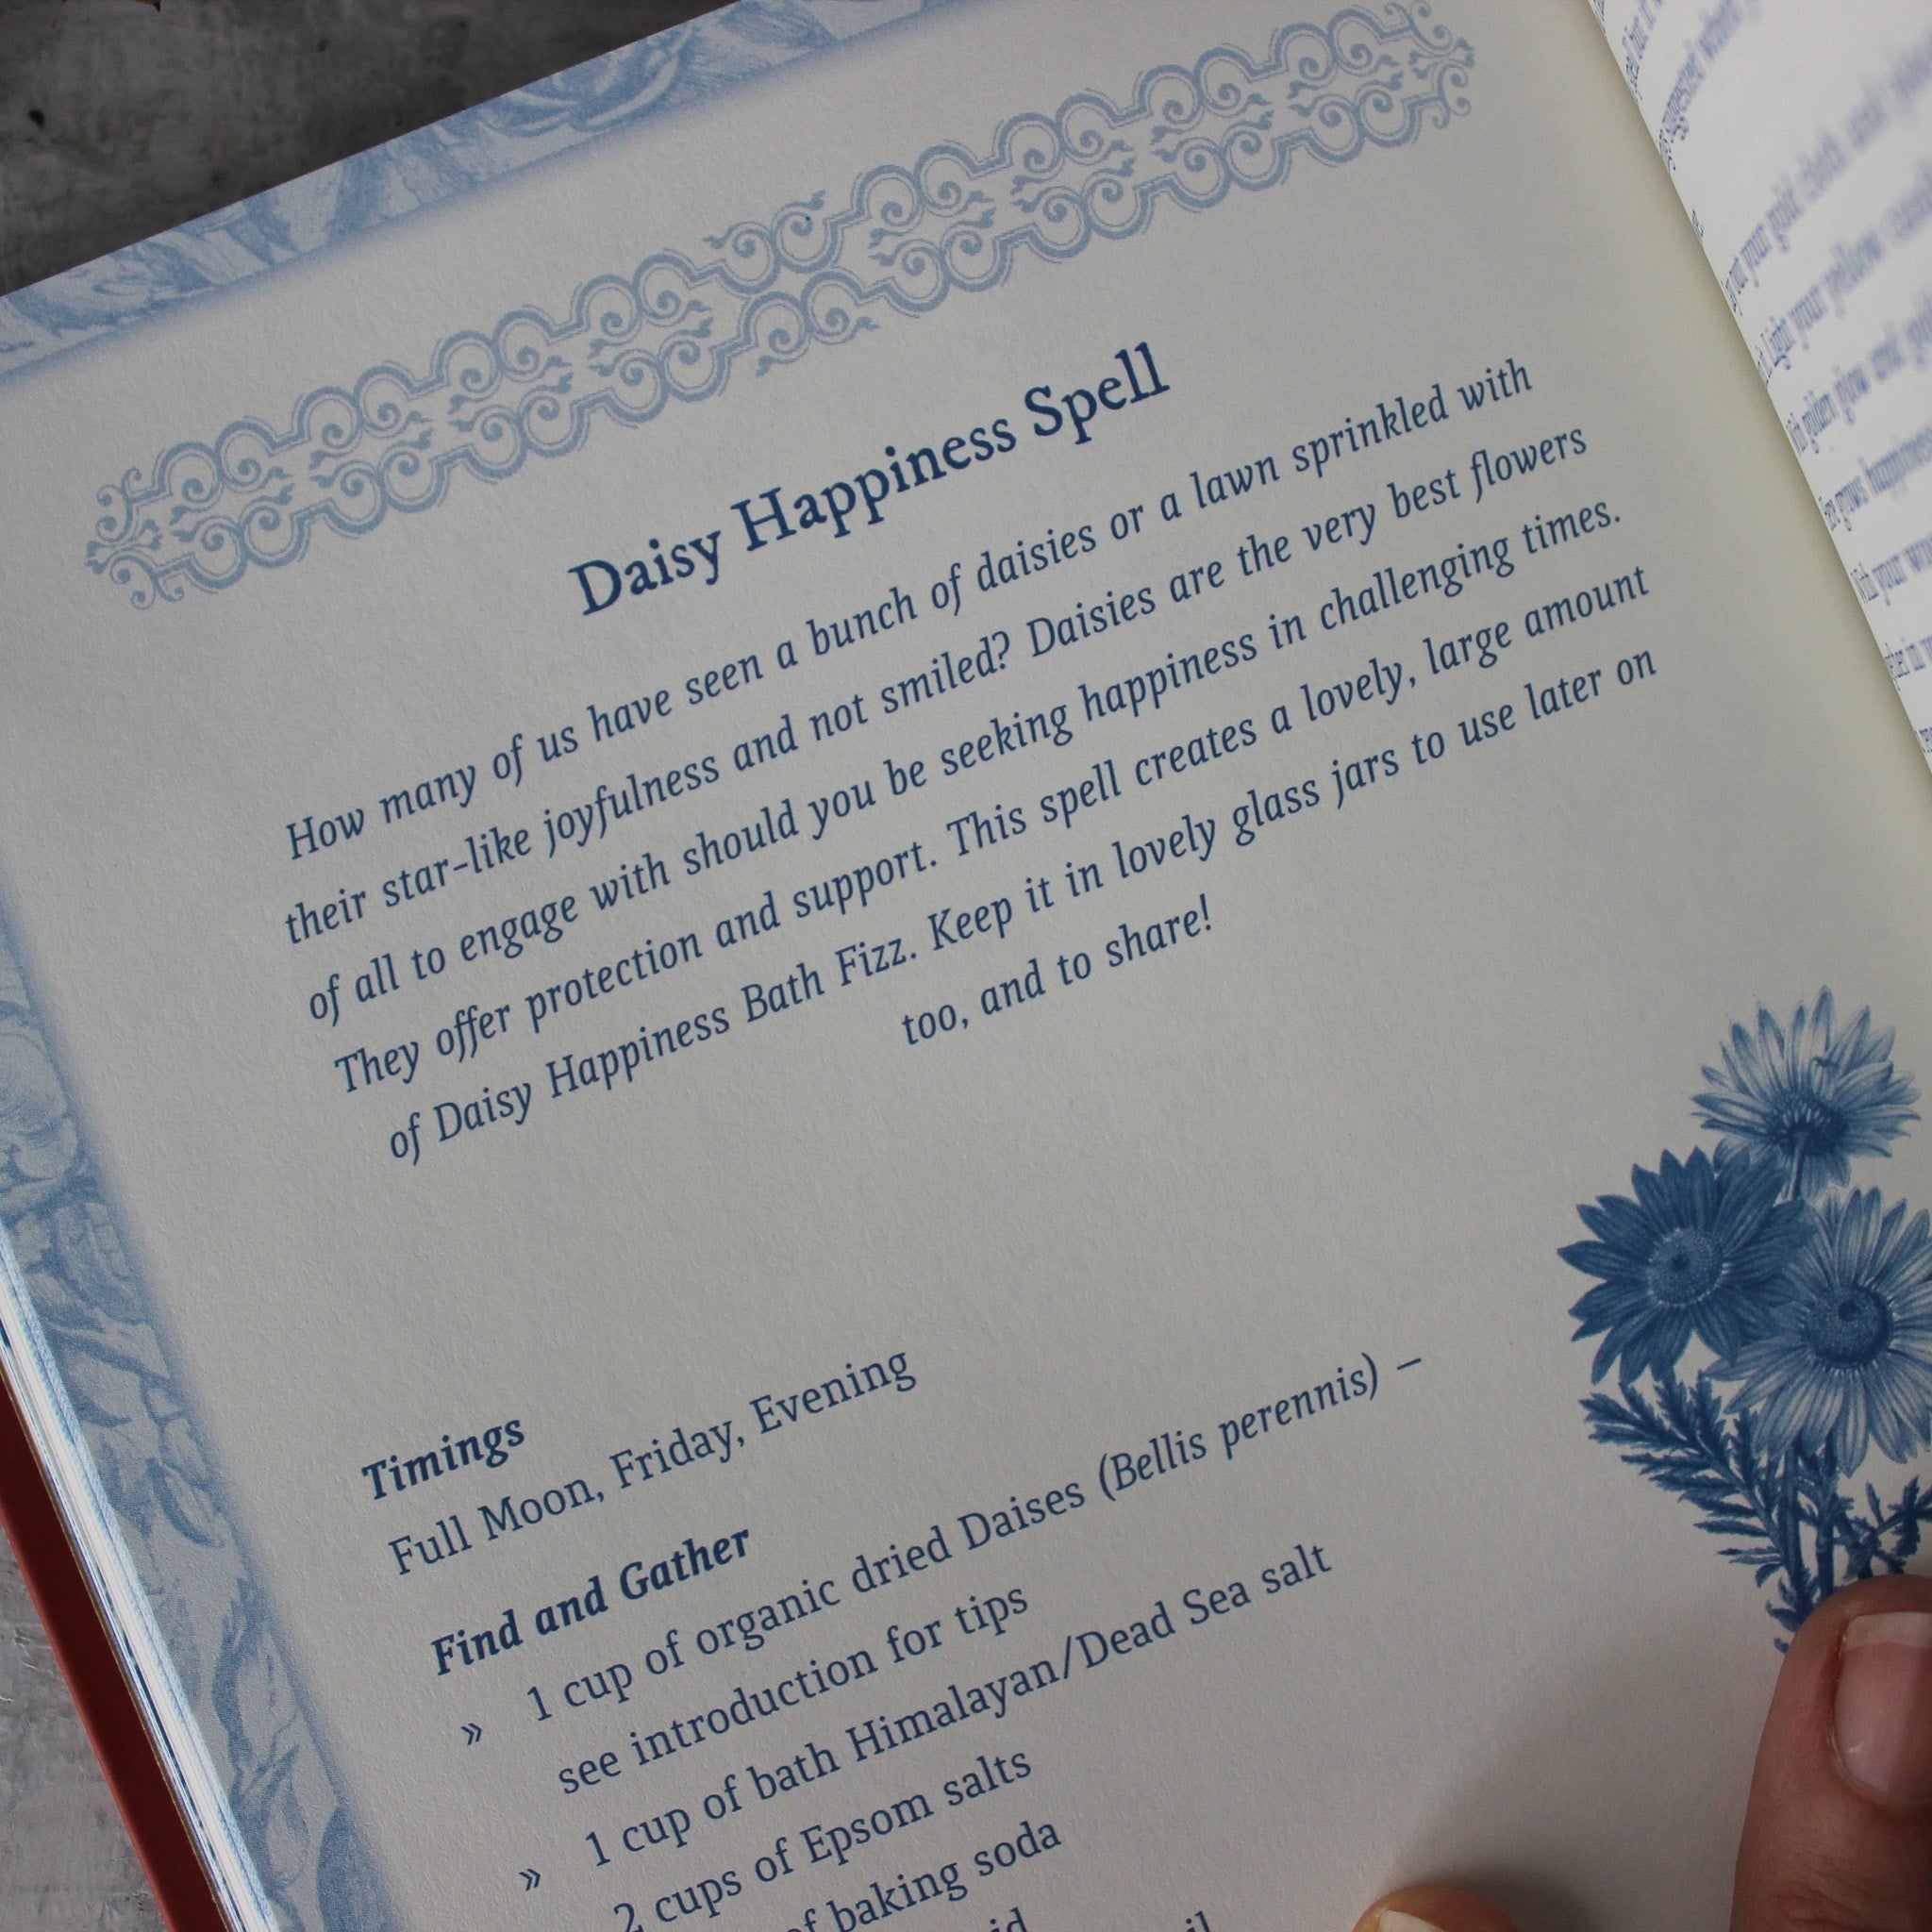 Daisy Happiness Spell
How many of us have seen a bunch of daisies or a lawn sprinkled with
their star-like joyfulness and not smiled? Daisies are the very best flowers
of all to engage with should you be seeking happiness in challenging times.
They offer protection and support. This spell creates a lovely, large amount
of Daisy Happiness Bath Fizz. Keep it in lovely glass jars to use later on
too, and to share!
Timings
Full Moon, Friday, Evening
Find and Gather
» 1 cup of organic dried Daises (Bellis perennis) –
see introduction for tips
» 1 cup of bath Himalayan/Dead Sea salt
2 cups of Epsom salts
of baking soda
your gold cloth and
Light your yellow
golden glow and
grows happiness
With your